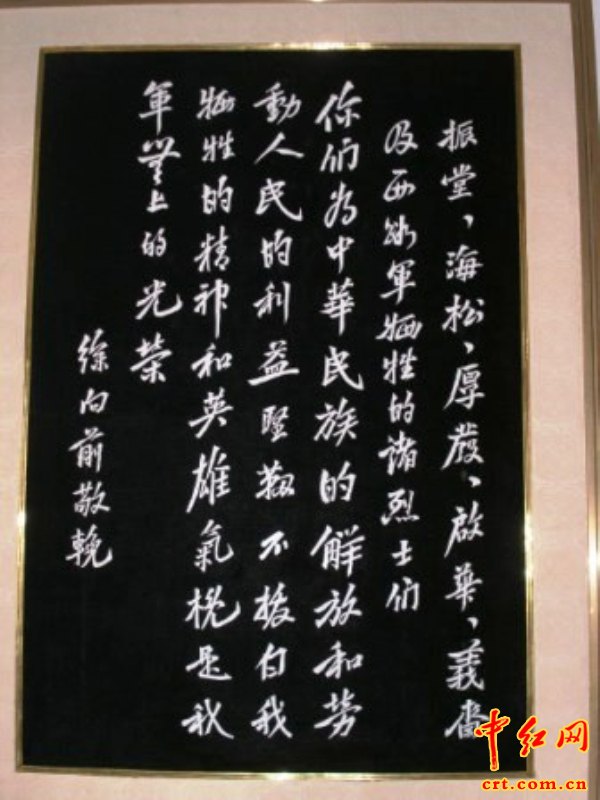 振堂、海松、厚發、啟華、義齋
及西路軍犧牲的諸烈士們
你們為中華民族的解放和勞
動人民的利益堅韌不拔自我
犧牲的精神和英雄氣概是我
軍無上的光榮
徐向前敬輓
中红网
crt.com.cn